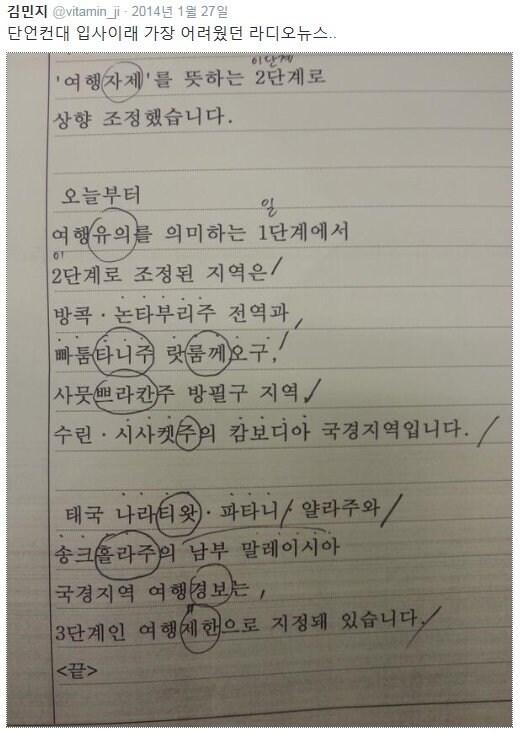 김민지 @vitamin_ji · 2014년 1월 27일
단언컨대 입사이래 가장 어려웠던 라디오뉴스..
이단계
'여행자제'를 뜻하는 2단계로
상향 조정했습니다.
오늘부터
일
여행유의를 의미하는 1단계에서
이
2단계로 조정된 지역은/
방콕·논타부리주 전역과,
빠툼타니주 랏룸께오구,/
사뭇쁘라칸주 방필구 지역,/
수린·시사켓주의 캄보디아 국경지역입니다. /
태국 나라티왓·파타니/·얄라주와/
송크홀라주의 남부 말레이시아
국경지역 여행경보는,
3단계인 여행제한으로 지정돼 있습니다./
<끝>